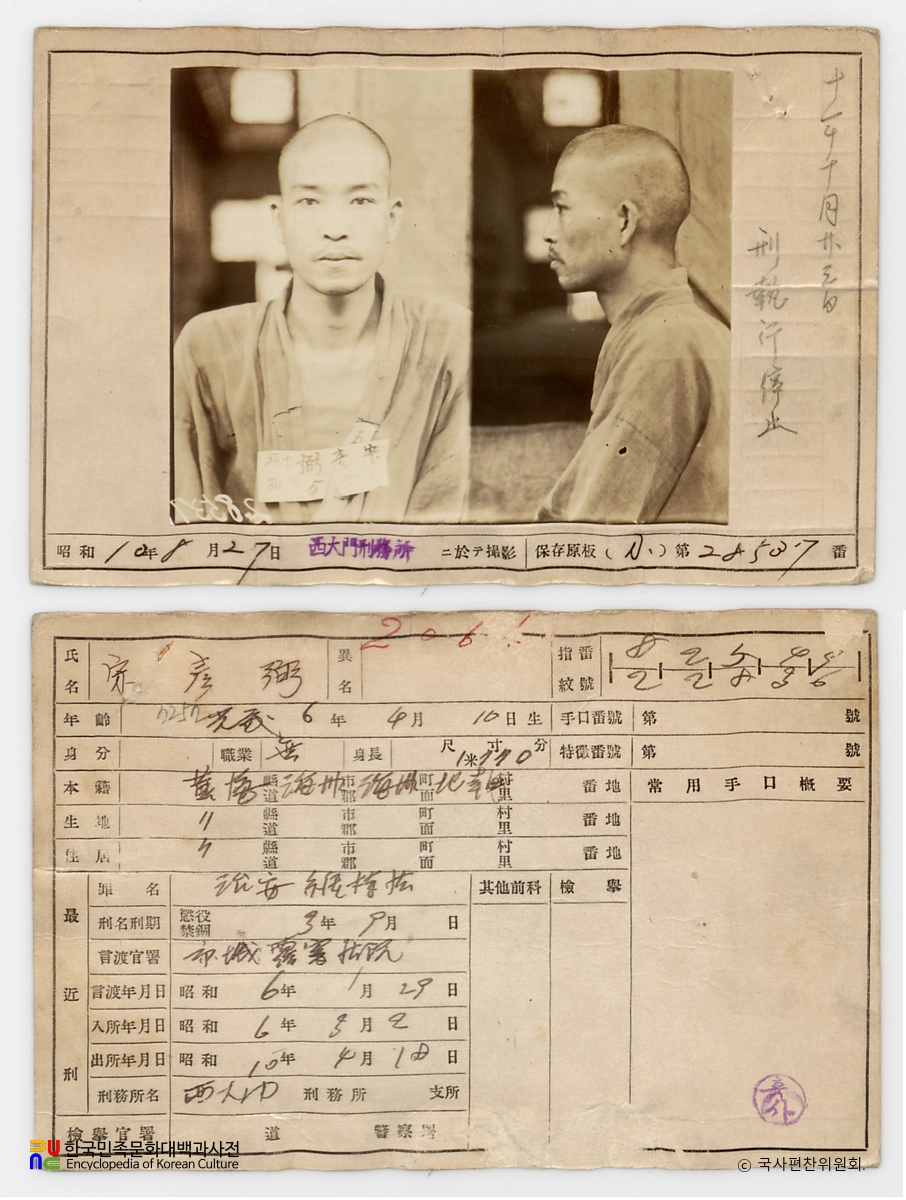 十一年十月廿三日
刑執行停止
宋彦弼
28537
昭和 10年 8月 27日 西大門刑務所 ニ於テ撮影 保存原板 ( ) 第 28537 番
206
氏名 宋彦弼 異名 指紋番號
年齡 光武 6年 4月 10日生 手口番號 第 號
身分 職業 無 身長 尺寸分 1米770 特徵番號 第 號
本籍 黃海 縣道 海州 市郡 海州 町面 村里 番地 常用手口槪要
生地 〃 縣道 市郡 町面 村里 番地
住居 〃 縣道 市郡 町面 村里 番地
最近刑
罪名 治安維持法 其他前科 檢擧
刑名刑期 懲役 禁錮 3年 9月 日
言渡官署 法院
言渡年月日 昭和 6年 1月 29日
入所年月日 昭和 6年 3月 2日
出所年月日 昭和 10年 4月 18日
刑務所名 西大門 刑務所 支所
檢擧官署 道 警察署
한국민족문화대백과사전
Encyclopedia of Korean Culture
ⓒ 국사편찬위원회.